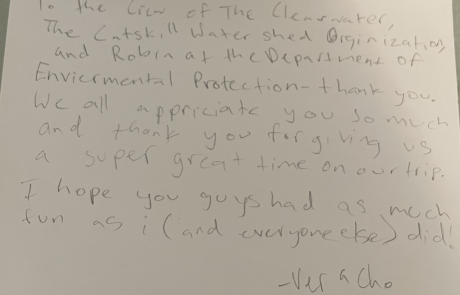 To the Crew of The Clearwater,
The Catskill Water shed Orginization,
and Robin at the Department of
Enviermental Protection - thank you.
We all appriciate you so much
and thank you for giving us
a super great time on our trip.
I hope you guys had as much
fun as i (and everyone else) did!
- Vera Cho